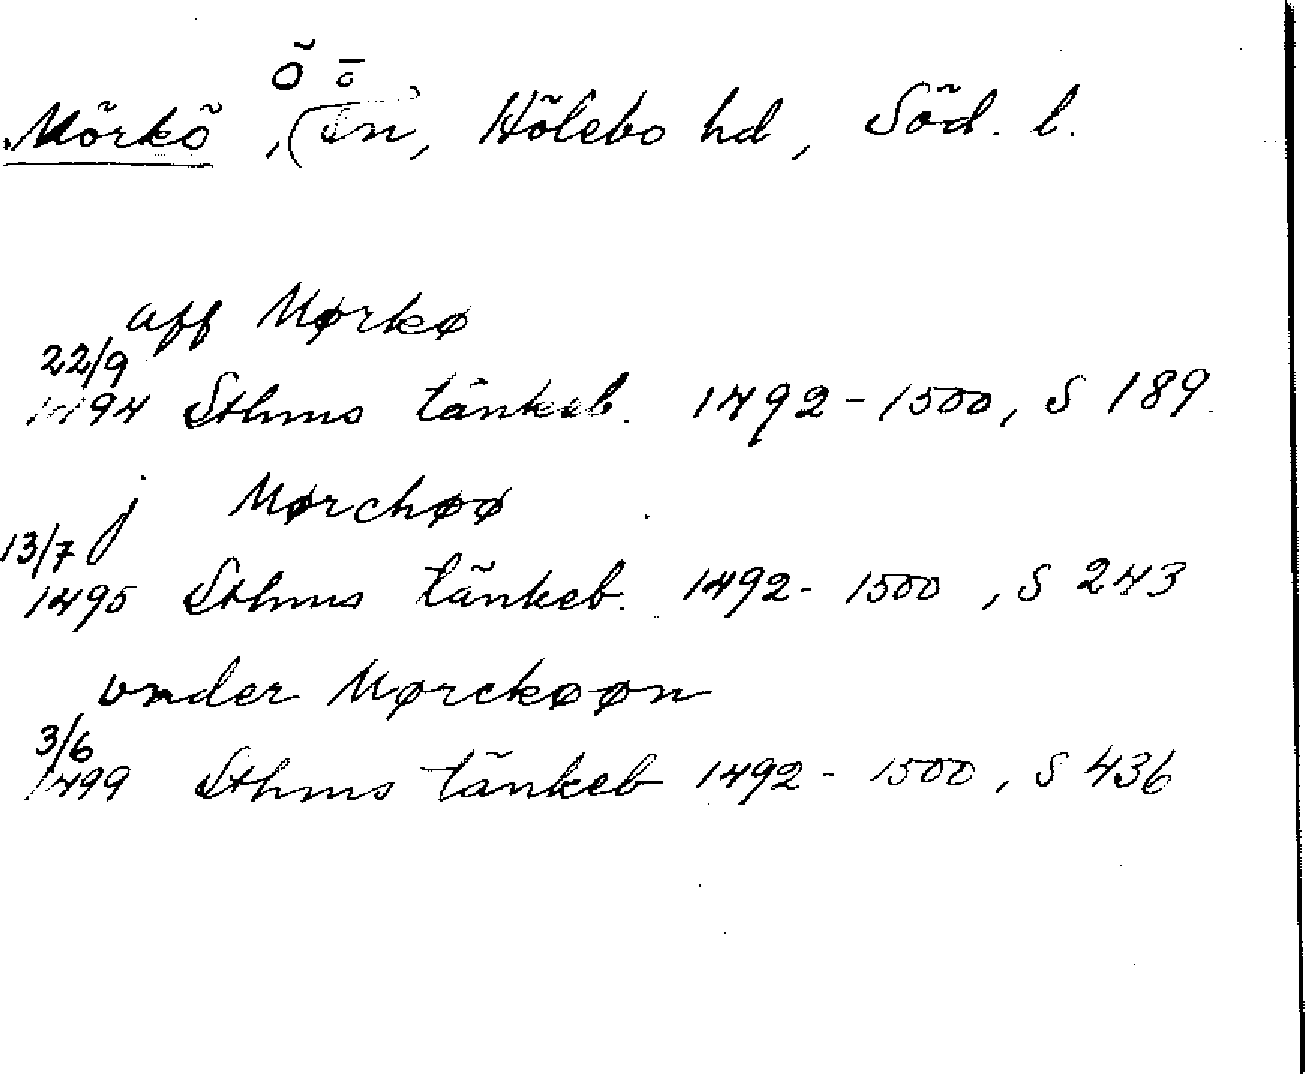 ö ö
Mörkö, (sn, Hölebo hd, Söd. l.
aff Mørkø
22/9
1494 Sthms tänkeb. 1492-1500, S 189.
j Mørchøø
13/7
1495 Sthms tänkeb. 1492-1500, S 243
vnder Mørckøøn
3/6
1499 Sthms tänkeb 1492-1500, S 436